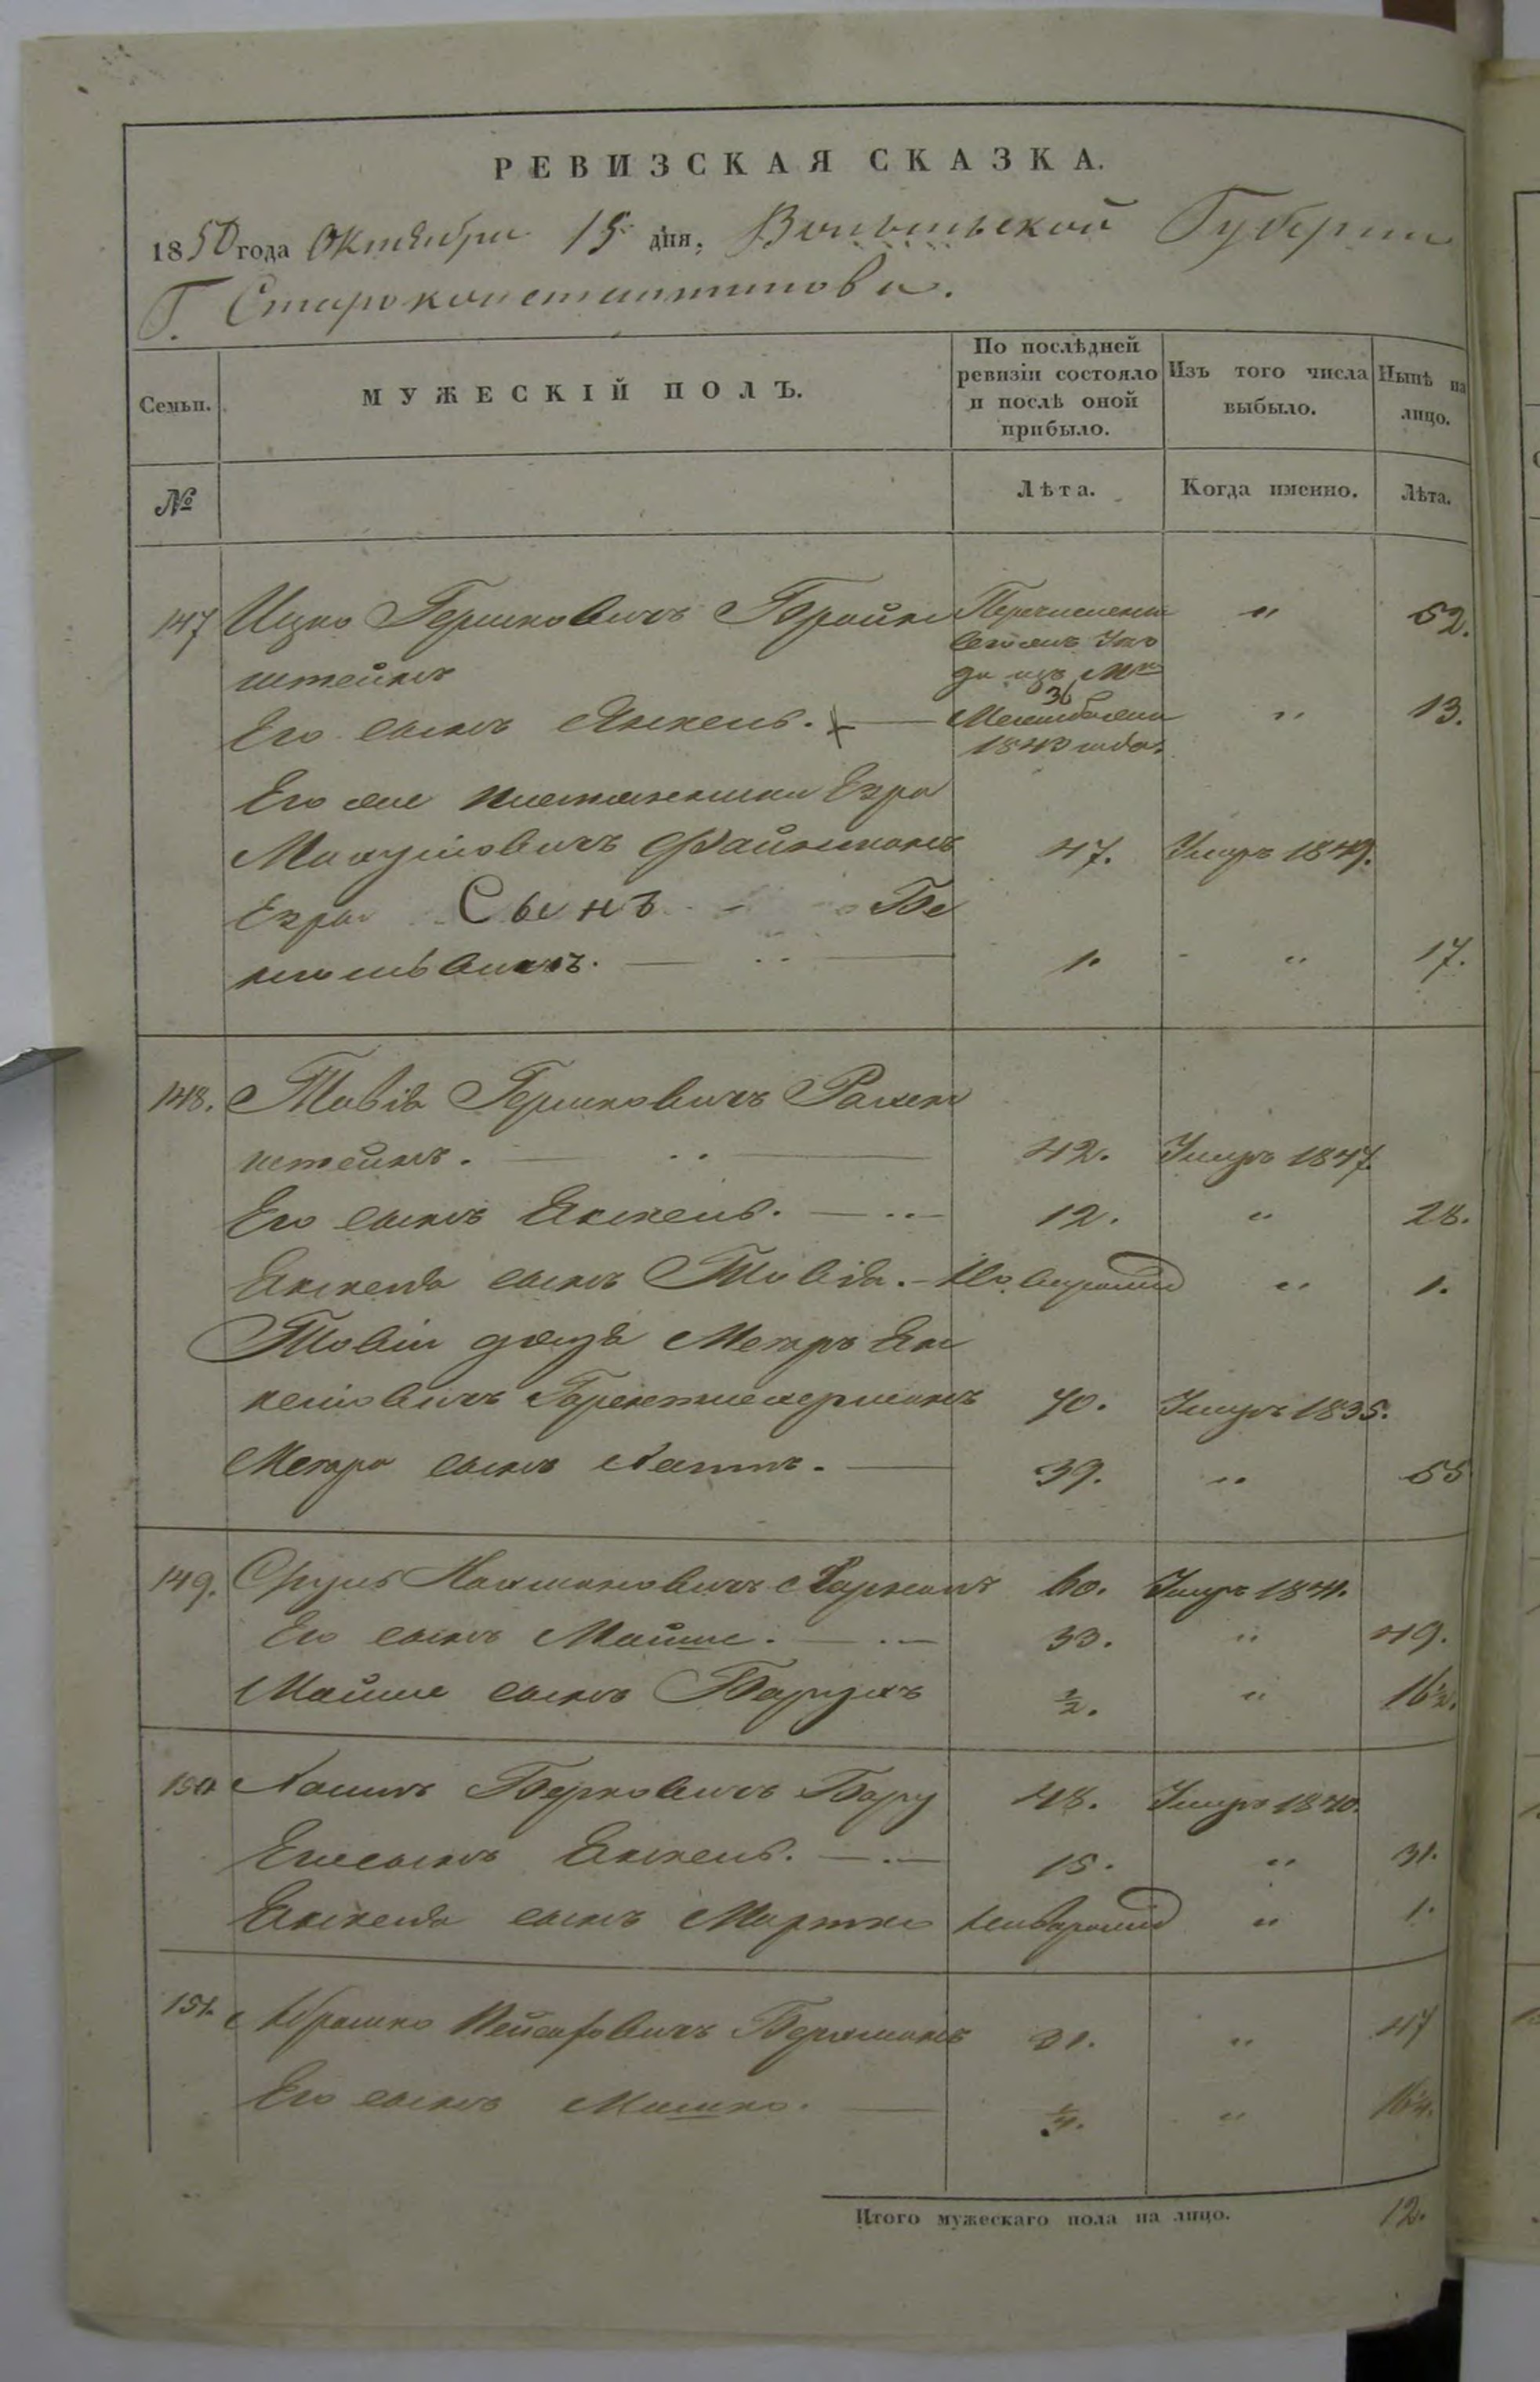 РЕВИЗСКАЯ СКАЗКА.
1850 года Октября 15 дня, Волынской Губернии
Г. Староконстантинова.
Семьи. МУЖЕСКІЙ ПОЛЪ. По послѣдней ревизіи состояло и послѣ оной прибыло. Изъ того числа выбыло. Нынѣ на лицо.
№ Лѣта. Когда именно. Лѣта.
147 Ицко Гершковичъ Бройн Перечисленъ " 52.
штейнъ
Его сынъ Янкель. " 13.
1843 года.
Его же племянники Езра
47. Умеръ 1849.
Езра Сынъ Бе
1. " 17.
148. Товія Гершковичъ
штейнъ. 42. Умеръ 1847
Его сынъ Янкель. 12. " 28.
Янкеля сынъ Товія. Новорожд " 1.
Товіи дядя Мееръ Ян
келіовичъ 70. Умеръ 1835.
Меера сынъ 39. " 55
149. Сруль Нахмановичъ 60. Умеръ 1841.
Его сынъ Мойше. 33. " 49.
Мойше сынъ Борухъ ½. " 16½.
150 Берковичъ 48. Умеръ 1840.
Его сынъ Янкель. 15. " 31.
Янкеля сынъ Мортко Новорожд " 1.
151. Абрашко Пейсаховичъ 31. " 47
Его сынъ Мошко. ¼. " 16¼.
Итого мужескаго пола на лицо. 12.